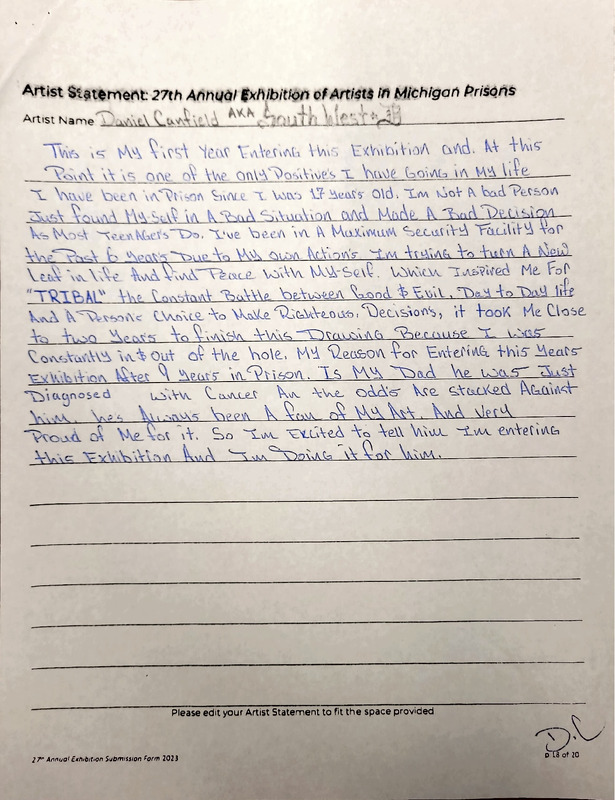 Artist Statement: 27th Annual Exhibition of Artists in Michigan Prisons
Artist Name Daniel Canfield AKA South West
This is My first Year Entering this Exhibition and. At this
Point it is one of the only Positive's I have Going in My life
I have been in Prison Since I was 17 Years old. Im Not A bad Person
Just found My self in A Bad Situation and Made A Bad Decision
As Most TeenAger's Do. I've been in A Maximum Security Facility for
the Past 6 Years Due to My own Action's. Im trying to turn A New
Leaf in life And find Peace with My self. Which Inspired Me For
"TRIBAL" the Constant Battle between Good & Evil, Day to Day life
And A Persons Choice to Make Righteous, Decisions, it took Me Close
to two Years to finish this Drawing Because I was
Constantly in & out of the hole. My Reason for Entering this Years
Exhibition After 9 Years in Prison. Is My Dad he was Just
Diagnosed with Cancer An the odd's Are stacked Against
him, he's Always been A fan of My Art. And very
Proud of Me for it. So Im Excited to tell him Im entering
this Exhibition And Im Doing it for him.
Please edit your Artist Statement to fit the space provided
D.C
27th Annual Exhibition Submission Form 2023
p 18 of 20